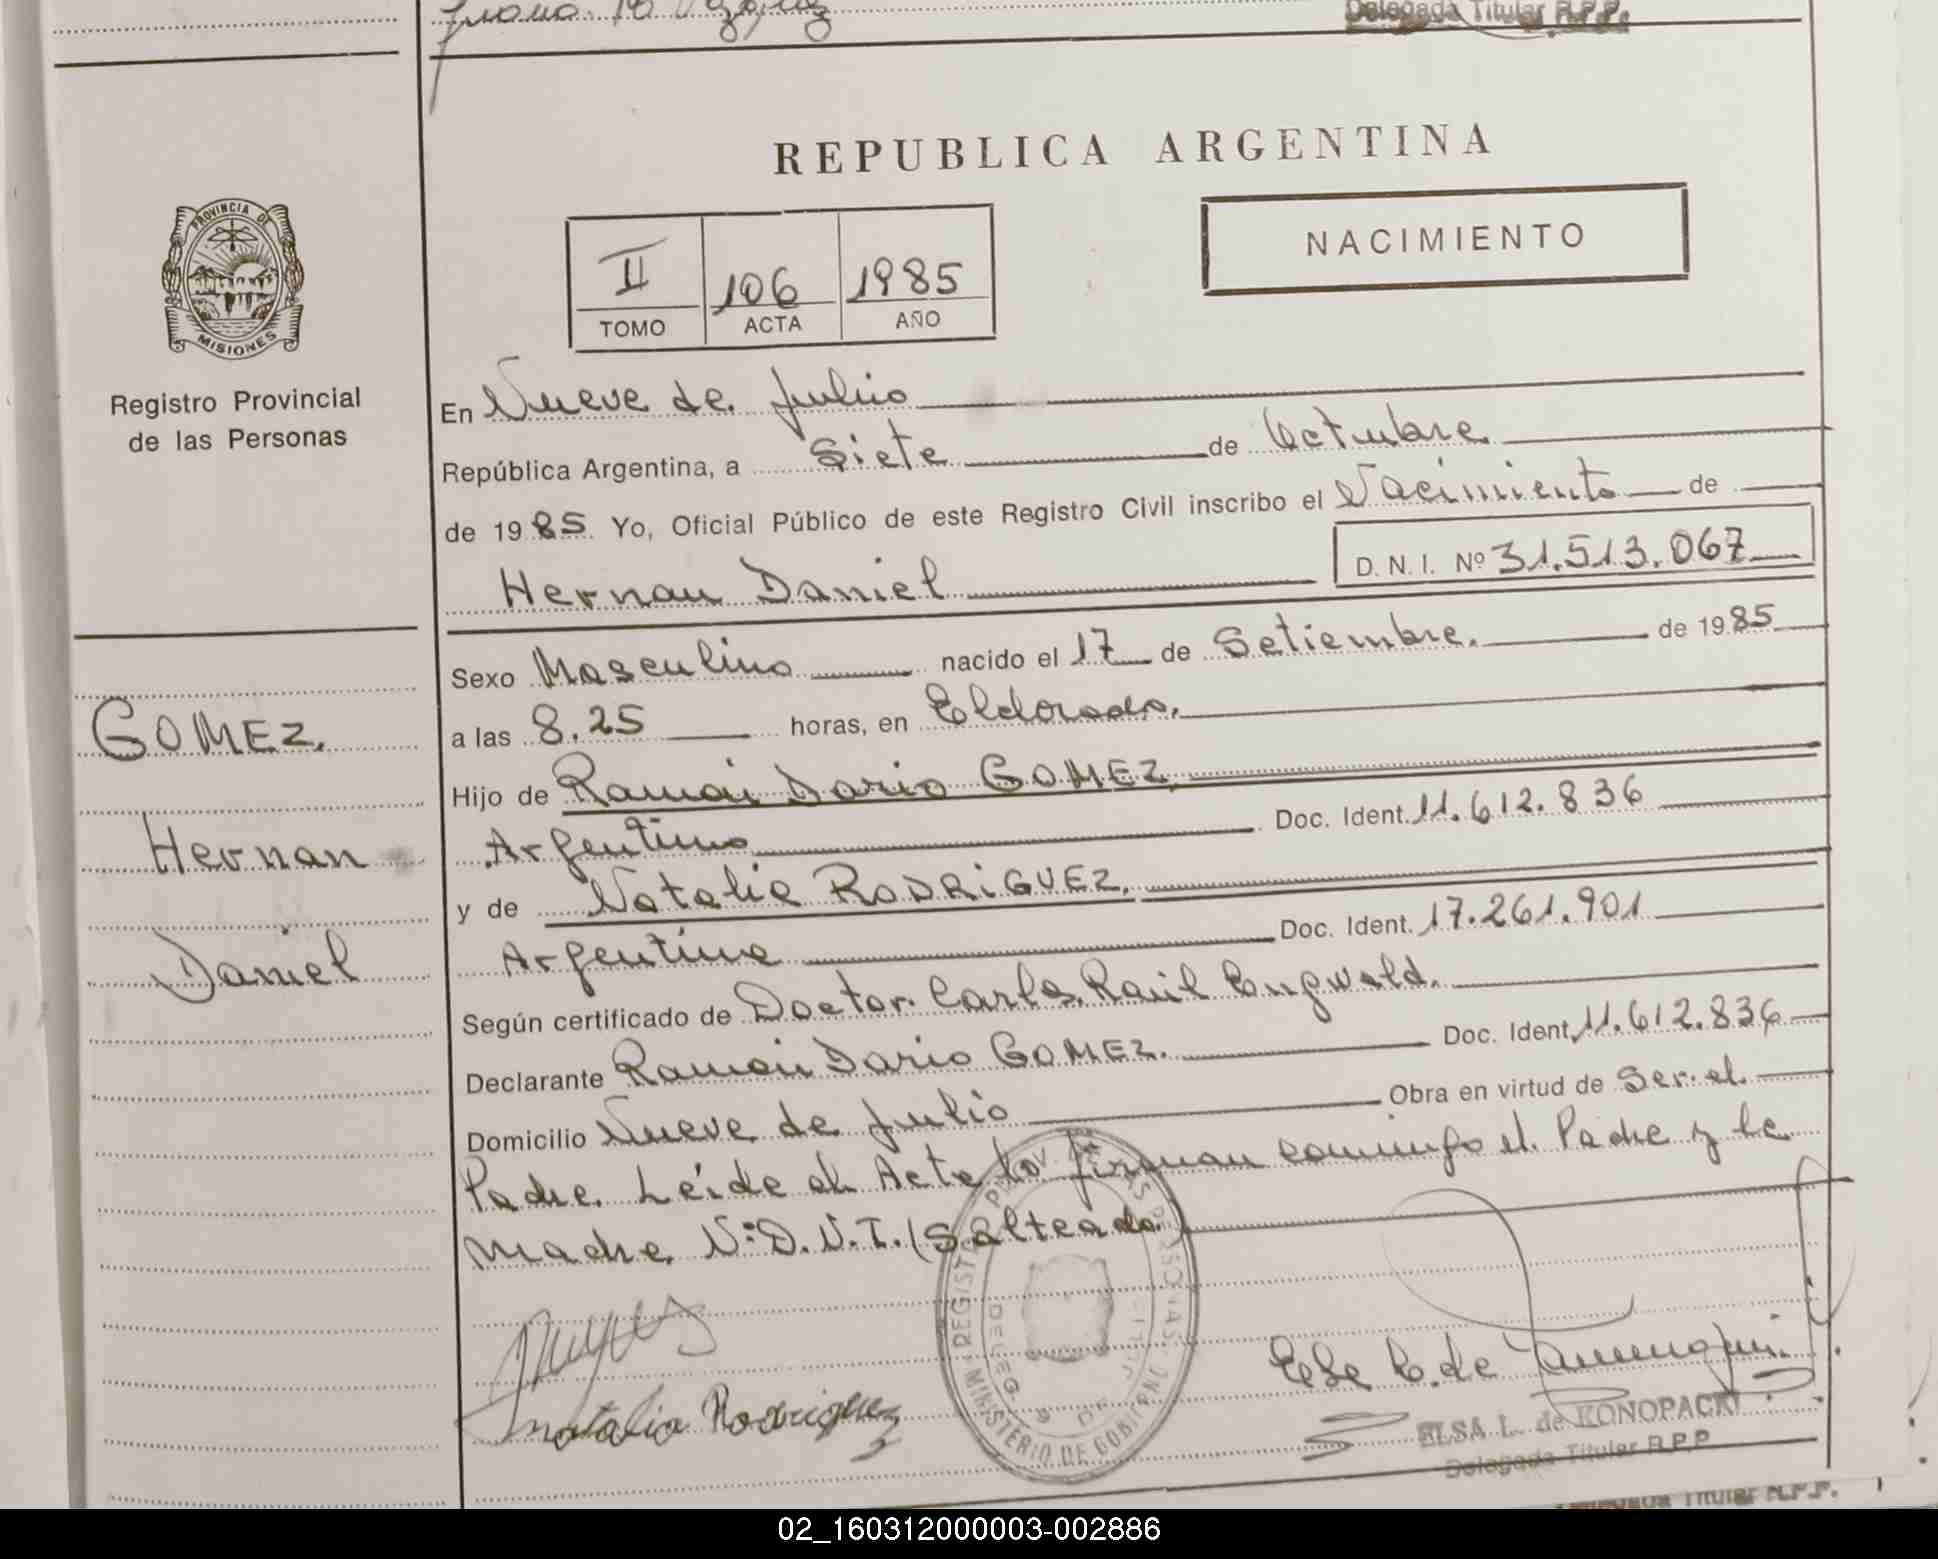 Delegada Titular R.P.P.
REPUBLICA ARGENTINA
PROVINCIA DE
MISIONES
Registro Provincial
de las Personas
II 106 1985
TOMO ACTA AÑO
NACIMIENTO
En Nueve de Julio
República Argentina, a Siete de Octubre
de 1985. Yo, Oficial Público de este Registro Civil inscribo el Nacimiento de
Hernan Daniel D.N.I. Nº 31.513.067
Sexo Masculino nacido el 17 de Setiembre. de 1985
GOMEZ.
a las 8.25 horas, en Eldorado.
Hijo de Ramón Dario GOMEZ.
Hernan
Argentino Doc. Ident. 11.612.836
y de Natalia RODRIGUEZ.
Daniel
Argentina Doc. Ident. 17.261.901
Según certificado de Doctor Carlos Raúl
Declarante Ramón Dario GOMEZ. Doc. Ident. 11.612.836
Domicilio Nueve de Julio Obra en virtud de Ser el
Padre. Leída el Acta la firman conmigo el Padre y la
Madre N:D.N.I. (Salteado)
MINISTERIO DE GOBIERNO
Natalia Rodriguez
ELSA L. de KONOPACKI
Delegada Titular R.P.P.
Delegada Titular R.P.P.
02_160312000003-002886